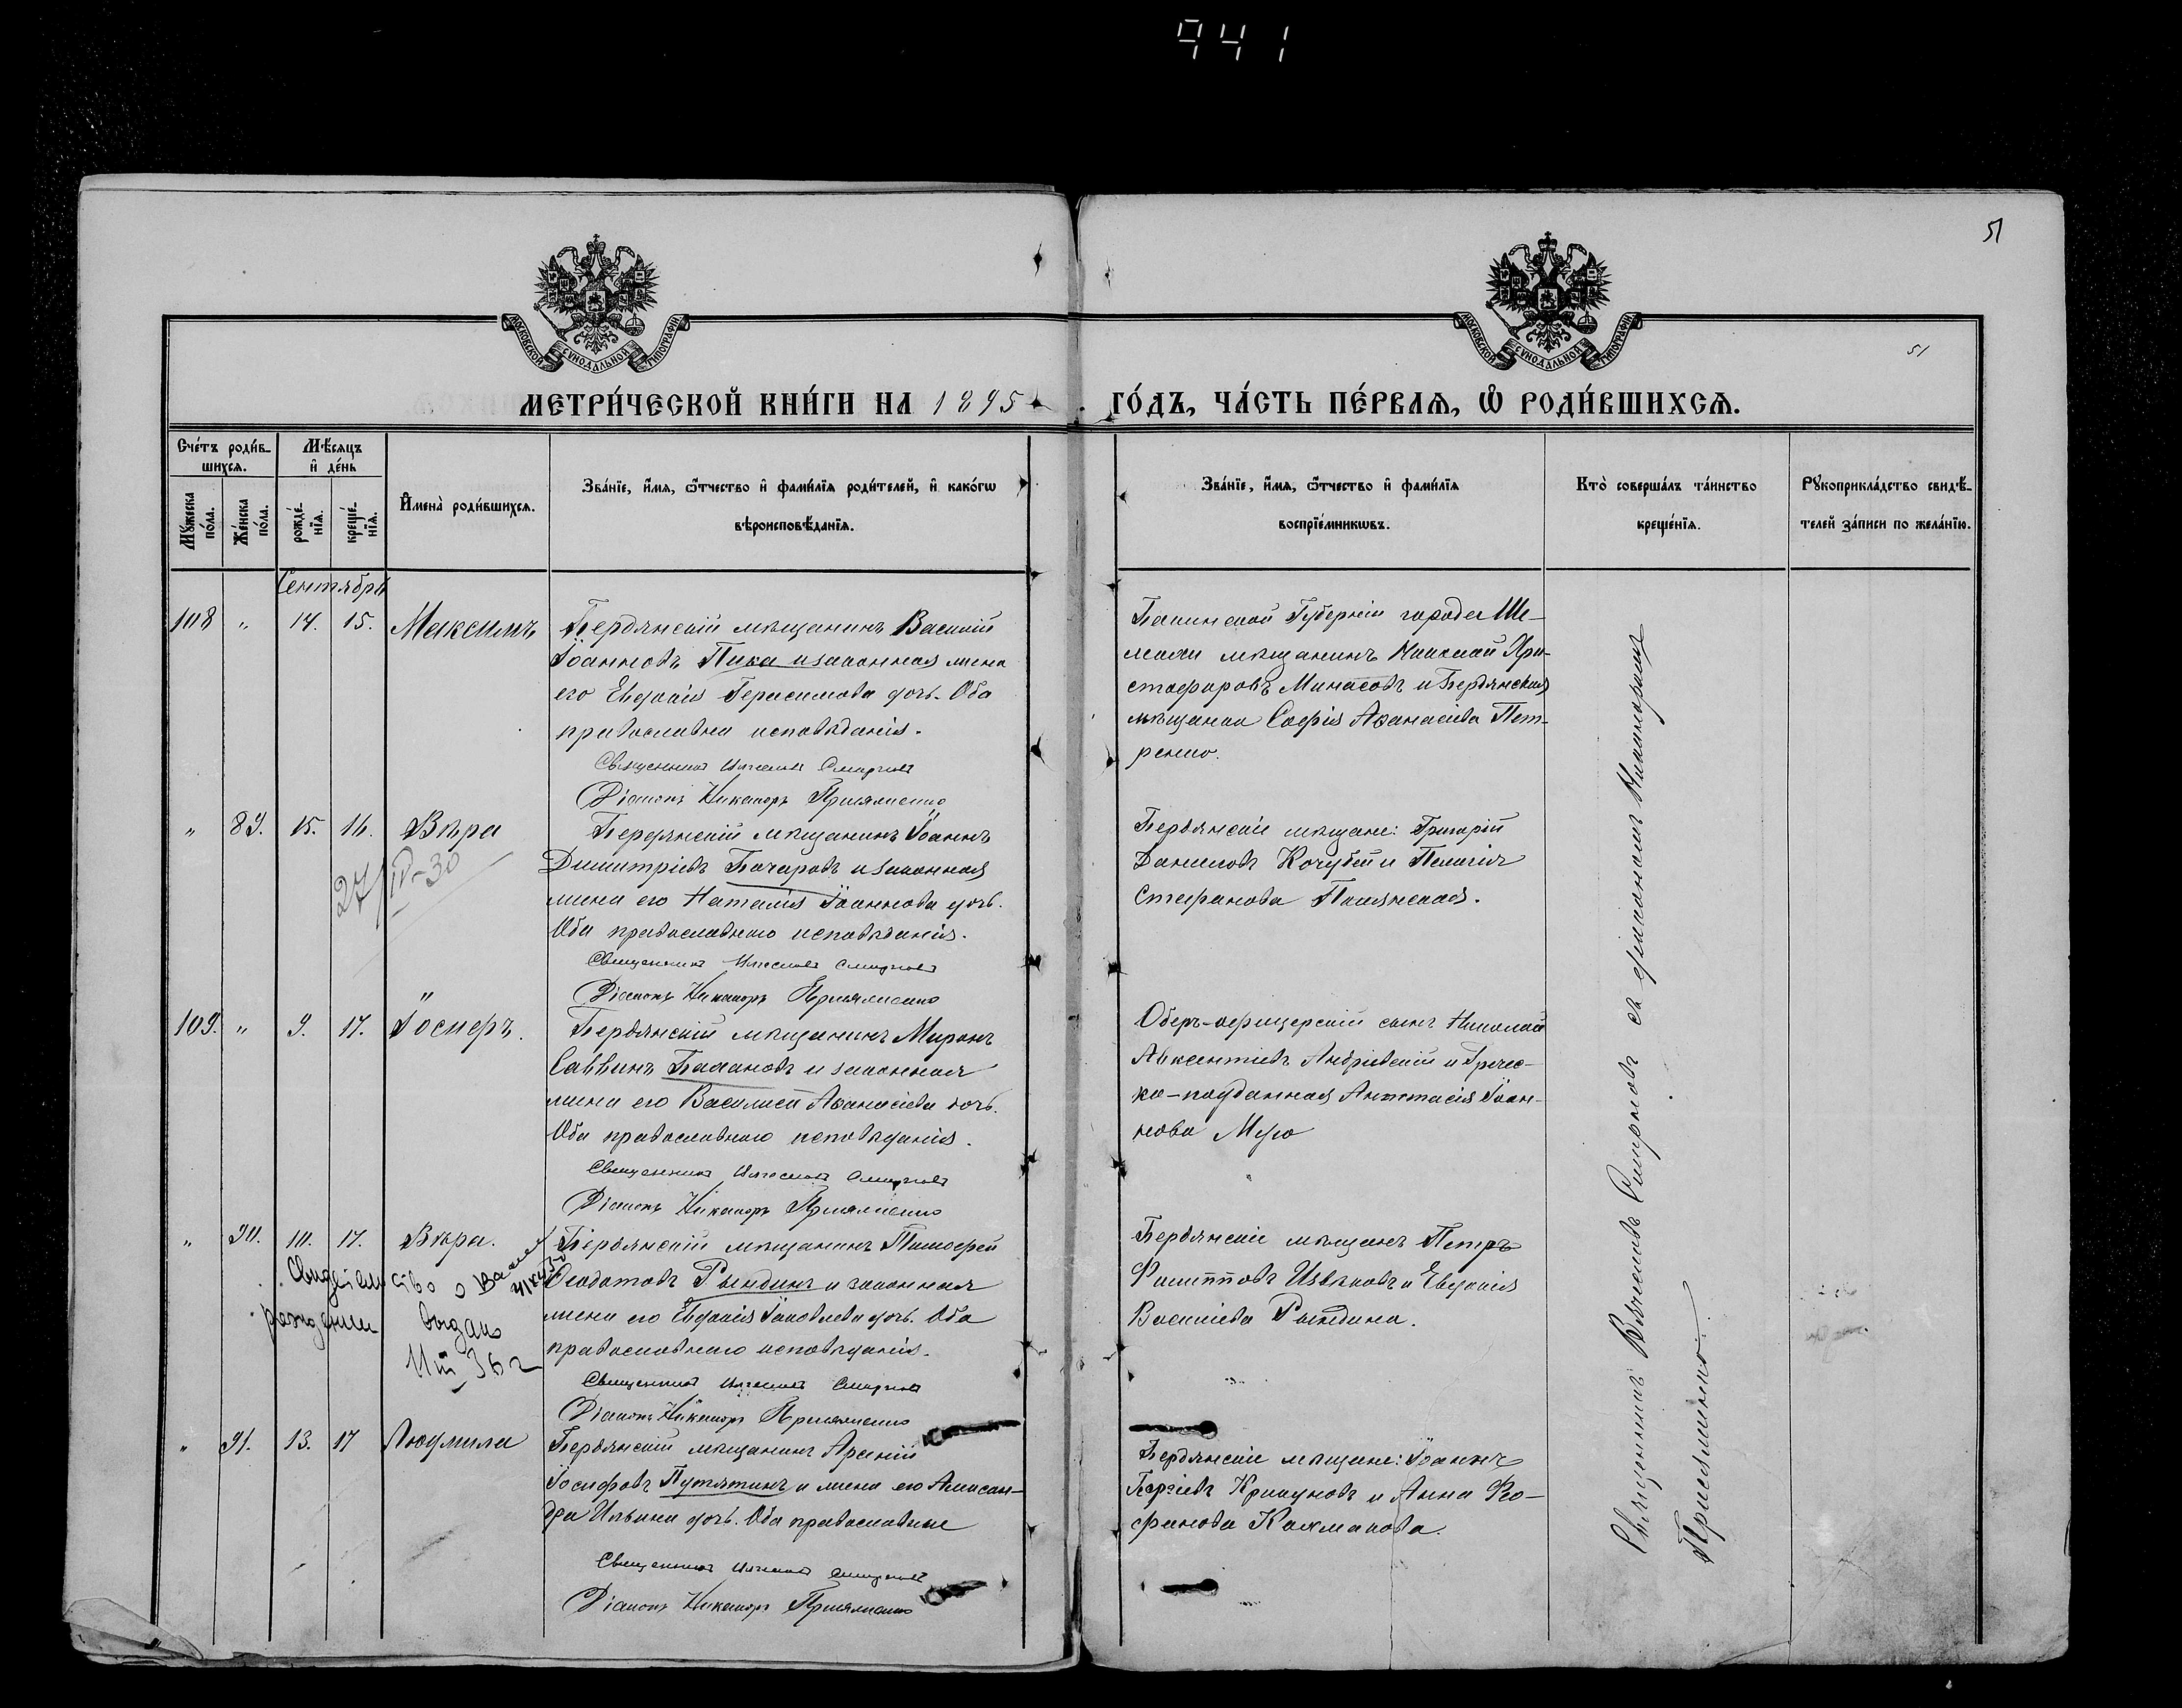 941
51
МОСКОВСКОЙ СѴНОДАЛЬНОЙ ТИПОГРАФІИ
МОСКОВСКОЙ СѴНОДАЛЬНОЙ ТИПОГРАФІИ
51
МЕТРИ́ЧЕСКОЙ КНИ́ГИ НА 1895 ГО́ДЪ, ЧА́СТЬ ПЕ́РВАѦ, Ѡ҆ РОДИ́ВШИХСѦ.
Сче́тъ роди́в-
шихсѧ.
Мꙋ́жеска по́ла.
Же́нска по́ла.
Мѣ́сѧцъ
и҆ де́нь
рожде́-
нїѧ.
креще́-
нїѧ.
И҆мена̀ роди́вшихсѧ.
Зва́нїе, и҆́мѧ, ѻ҆́тчество и҆ фами́лїѧ роди́телей, и҆ како́гѡ
вѣроисповѣ́данїѧ.
Зва́нїе, и҆́мѧ, ѻ҆́тчество и҆ фами́лїѧ
воспрїе́мникѡвъ.
Кто̀ соверша́лъ та́инство
креще́нїѧ.
Рꙋкоприкла́дство свидѣ́-
телей за́писи по жела́нїю.
Сентябрь
108 " 14. 15. Максимъ
Бердянскій мѣщанинъ Василій
Іоанновъ Пика и законная жена
его Евдокія Герасимова дочь. Оба
православна исповѣданія.
Священникъ Смирновъ
Діаконъ Никаноръ Присяженко
Бакинской Губерніи города Ше-
махи мѣщанинъ Николай Хри-
стофоровъ Минасовъ и Бердянская
мѣщанка Софія Аѳанасіева Пет-
ренко.
" 89. 15. 16. Вѣра
27/IV-30
Бердянскій мѣщанинъ Іоаннъ
Димитріевъ Бочаровъ и законная
жена его Наталія Іоаннова дочь.
Оба православнаго исповѣданія.
Священникъ Смирновъ
Діаконъ Никаноръ Присяженко
Бердянскіе мѣщане: Григорій
Даниловъ Кочубей и Пелагія
Стефанова
109. " 9. 17. Іосифъ.
Бердянскій мѣщанинъ Миронъ
Саввинъ Балановъ и законная
жена его Василиса Аѳанасіева дочь.
Оба православнаго исповѣданія.
Священникъ Смирновъ
Діаконъ Никаноръ Присяженко
Оберъ-офицерскій сынъ Николай
Авксентіевъ Андріевскій и Гречес-
ко-подданная Анастасія Іоан-
нова
" 90. 10. 17. Вѣра.
Свидетельство о
рождении выдано
Бердянскій мѣщанинъ Тимофей
Ѳеодотовъ Рындинъ и законная
жена его Евдокія Іаковлева дочь. Оба
православнаго исповѣданія.
Священникъ Смирновъ
Діаконъ Никаноръ Присяженко
Бердянскіе мѣщане Петръ
Филипповъ и Евдокія
Василіева Рындина.
" 91. 13. 17 Людмила
Бердянскій мѣщанинъ Арсеній
Іосифовъ Путятинъ и жена его Алексан-
дра Ильина дочь. Оба православные
Священникъ Смирновъ
Діаконъ Никаноръ Присяженко
Бердянскіе мѣщане: Іоаннъ
Георгіевъ Крикуновъ и Анна Фео-
фанова
Священникъ Вячеславъ Смирновъ съ діакономъ Никаноромъ
Присяженко.